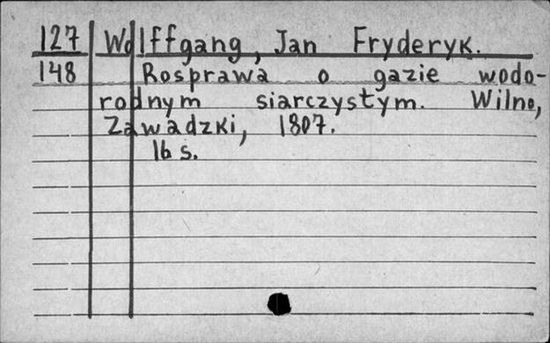 127 Wolffgang, Jan Fryderyk.
148 Rosprawa o gazie wodo-
rodnym siarczystym. Wilno,
Zawadzki, 1807.
16 s.